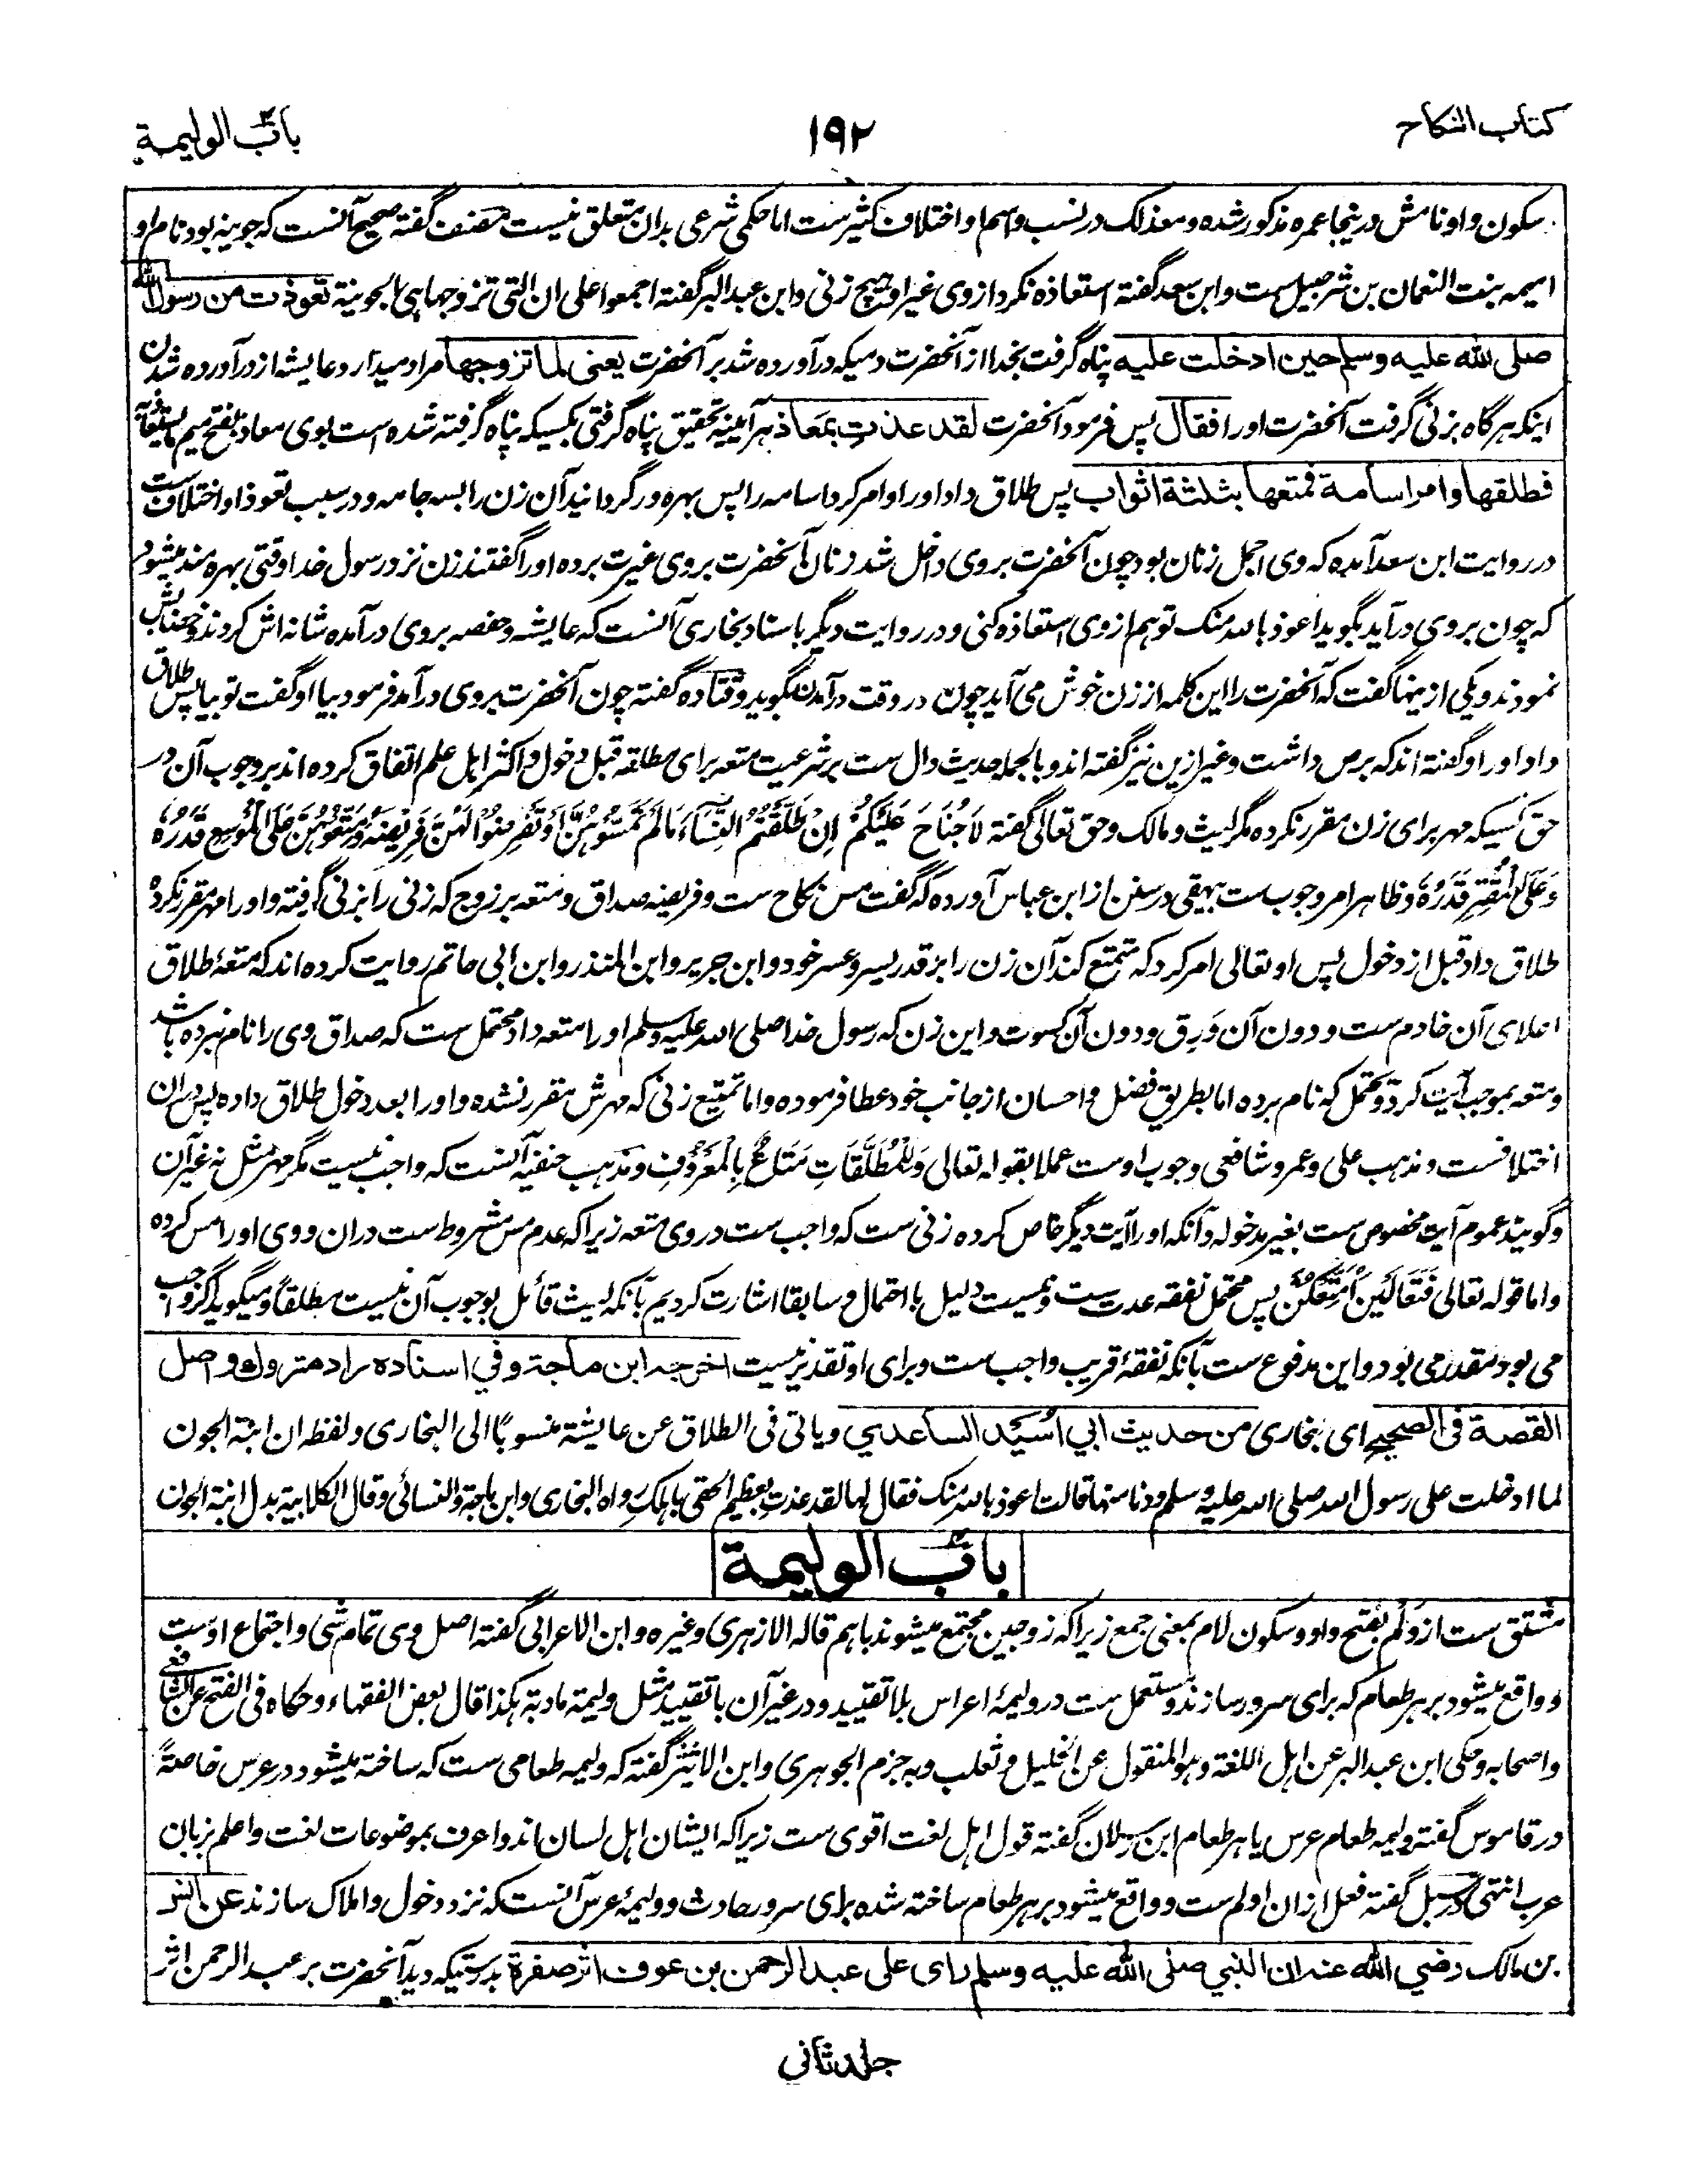 کتاب النکاح
۱۹۲
باب الولیمة
سکون واو نامش درینجا عمره مذکور شده و معذلک در نسب و اسم او اختلاف کثیرست اما حکمی شرعی بدان متعلق نیست مصنف گفته صحیح آنست که جونیه بود نام او
امیمه بنت النعمان بن شرحبیل ست و ابن سعد گفته استعاذه نکرد از وی غیر او هیچ زنی و ابن عبدالبر گفته اجمعوا علی ان التی تزوجها هی الجونیة تعوذت من رسول الله
صلی الله علیه وسلم حین ادخلت علیه پناه گرفت بخدا از آنحضرت دمیکه درآورده شد بر آنحضرت یعنی لما تزوجها مراد میدارد عایشه از درآورده شدن
اینکه هرگاه بزنی گرفت آنحضرت او را فقال پس فرمود آنحضرت لقد عذت بمعاذ هر آیینه تحقیق پناه گرفتی بکسیکه پناه گرفته شده است بوی معاذ بفتح میم
فطلقها وامر اسامة فمتعها بثلثة اثواب پس طلاق داد او را و امر کرد اسامه را پس بهره ور گردانید آن زن را بسه جامه و در سبب تعوذ او اختلاف ست
در روایت ابن سعد آمده که وی اجمل زنان بود چون آنحضرت بروی داخل شد زنان آنحضرت بروی غیرت برده او را گفتند زن نزد رسول خدا وقتی بهره مند میشود
که چون بروی درآید بگوید اعوذ بالله منک تو هم از وی استعاذه کنی و در روایت دیگر باسناد بخاری آنست که عایشه و حفصه بروی درآمده شانه اش کردند و خضابش
نمودند و یکی ازینها گفت که آنحضرت را این کلمه از زن خوش می آید چون در وقت درآمدن بگوید و قتاده گفته چون آنحضرت بروی درآمد فرمود بیا او گفت تو بیا پس طلاق
داد او را و گفته اند که برص داشت و غیر ازین نیز گفته اند و بالجمله حدیث دال ست بر شرعیت متعه برای مطلقه قبل دخول و اکثر اهل علم اتفاق کرده اند بر وجوب آن در
حق کسیکه مهر برای زن مقرر نکرده مگر لیث و مالک و حق تعالی گفته لَا جُنَاحَ عَلَیْکُمْ اِنْ طَلَّقْتُمُ النِّسَآءَ مَا لَمْ تَمَسُّوْهُنَّ اَوْ تَفْرِضُوْا لَهُنَّ فَرِیْضَةً وَّمَتِّعُوْهُنَّ عَلَی الْمُوْسِعِ قَدَرُهٗ
وَعَلَی الْمُقْتِرِ قَدَرُهٗ و ظاهر امر وجوب ست بیهقی در سنن از ابن عباس آورده که گفت مس نکاح ست و فریضه صداق و متعه بر زوج که زنی را بزنی گرفته و او را مهر مقرر نکرده
طلاق داد قبل از دخول پس او تعالی امر کرد که تمتع کند آن زن را بر قدر یسر و عسر خود و ابن جریر و ابن المنذر و ابن ابی حاتم روایت کرده اند که متعهٔ طلاق
اعلای آن خادم ست و دون آن وَرِق و دون آن کسوت و این زن که رسول خدا صلی الله علیه وسلم او را متعه داد محتمل ست که صداق وی را نام نبرده باشد
و متعه بموجب آیت کرد و محتمل که نام برده اما بطریق فضل و احسان از جانب خود عطا فرموده و اما تمتیع زنی که مهرش مقرر نشده و او را بعد دخول طلاق داده پس دران
اختلافست و مذهب علی و عمر و شافعی وجوب اوست عملا بقوله تعالی وَلِلْمُطَلَّقَاتِ مَتَاعٌ بِالْمَعْرُوْفِ و مذهب حنفیه آنست که واجب نیست مگر مهر مثل نه غیر آن
و گویند عموم آیت مخصوص ست بغیر مدخوله و آنکه او را آیت دیگر خاص کرده زنی ست که واجب ست در وی متعه زیرا که عدم مس مشروط ست دران و وی او را مس کرده
و اما قوله تعالی فَتَعَالَیْنَ اُمَتِّعْکُنَّ پس محتمل نفقه عدت ست و نیست دلیل با احتمال و سابقا اشارت کردیم بآنکه لیث قائل بوجوب آن نیست مطلقاً و میگوید اگر واجب
می بود مقدر می بود و این مدفوع ست بآنکه نفقهٔ قریب واجب ست و برای او تقدیر نیست اخرجه ابن ماجة وفی اسناده راو متروك واصل
القصة فی الصحیح ای بخاری من حدیث ابی اُسَیْد الساعدی و یاتی فی الطلاق عن عایشة منسوبًا الی البخاری و لفظه ان ابنة الجون
لما ادخلت علی رسول الله صلی الله علیه وسلم و دنا منها قالت اعوذ بالله منک فقال لها لقد عذت بعظیم الحقی باهلک رواه البخاری و ابن ماجة و النسائی و قال الکلابیة بدل ابنة الجون
باب الولیمة
مشتق ست از وَلْم بفتح واو و سکون لام بمعنی جمع زیرا که زوجین مجتمع میشوند باهم قاله الازهری و غیره و ابن الاعرابی گفته اصل وی تمام شی و اجتماع اوست
و واقع میشود بر هر طعام که برای سرور سازند و مستعمل ست در ولیمهٔ اعراس بلا تقیید و در غیر آن با تقیید مثل ولیمة مادبة هکذا قال بعض الفقهاء و حکاه فی الفتح عن الشافعی
و اصحابه و حکی ابن عبدالبر عن اهل اللغة و هو المنقول عن الخلیل و ثعلب و به جزم الجوهری و ابن الاثیر گفته که ولیمه طعامی ست که ساخته میشود در عرس خاصةً
در قاموس گفته ولیمه طعام عرس یا هر طعام ابن رسلان گفته قول اهل لغت اقوی ست زیرا که ایشان اهل لسان اند و اعرف بموضوعات لغت و اعلم بزبان
عرب انتهی و در سبل گفته فعل ازان اولم ست و واقع میشود بر هر طعام ساخته شده برای سرور حادث و ولیمهٔ عرس آنست که نزد دخول و املاک سازند عن انس
بن مالک رضی الله عنه ان النبی صلی الله علیه وسلم رای علی عبد الرحمن بن عوف اثر صفرة بدرستیکه دید آنحضرت بر عبد الرحمن اثر
جلد ثانی